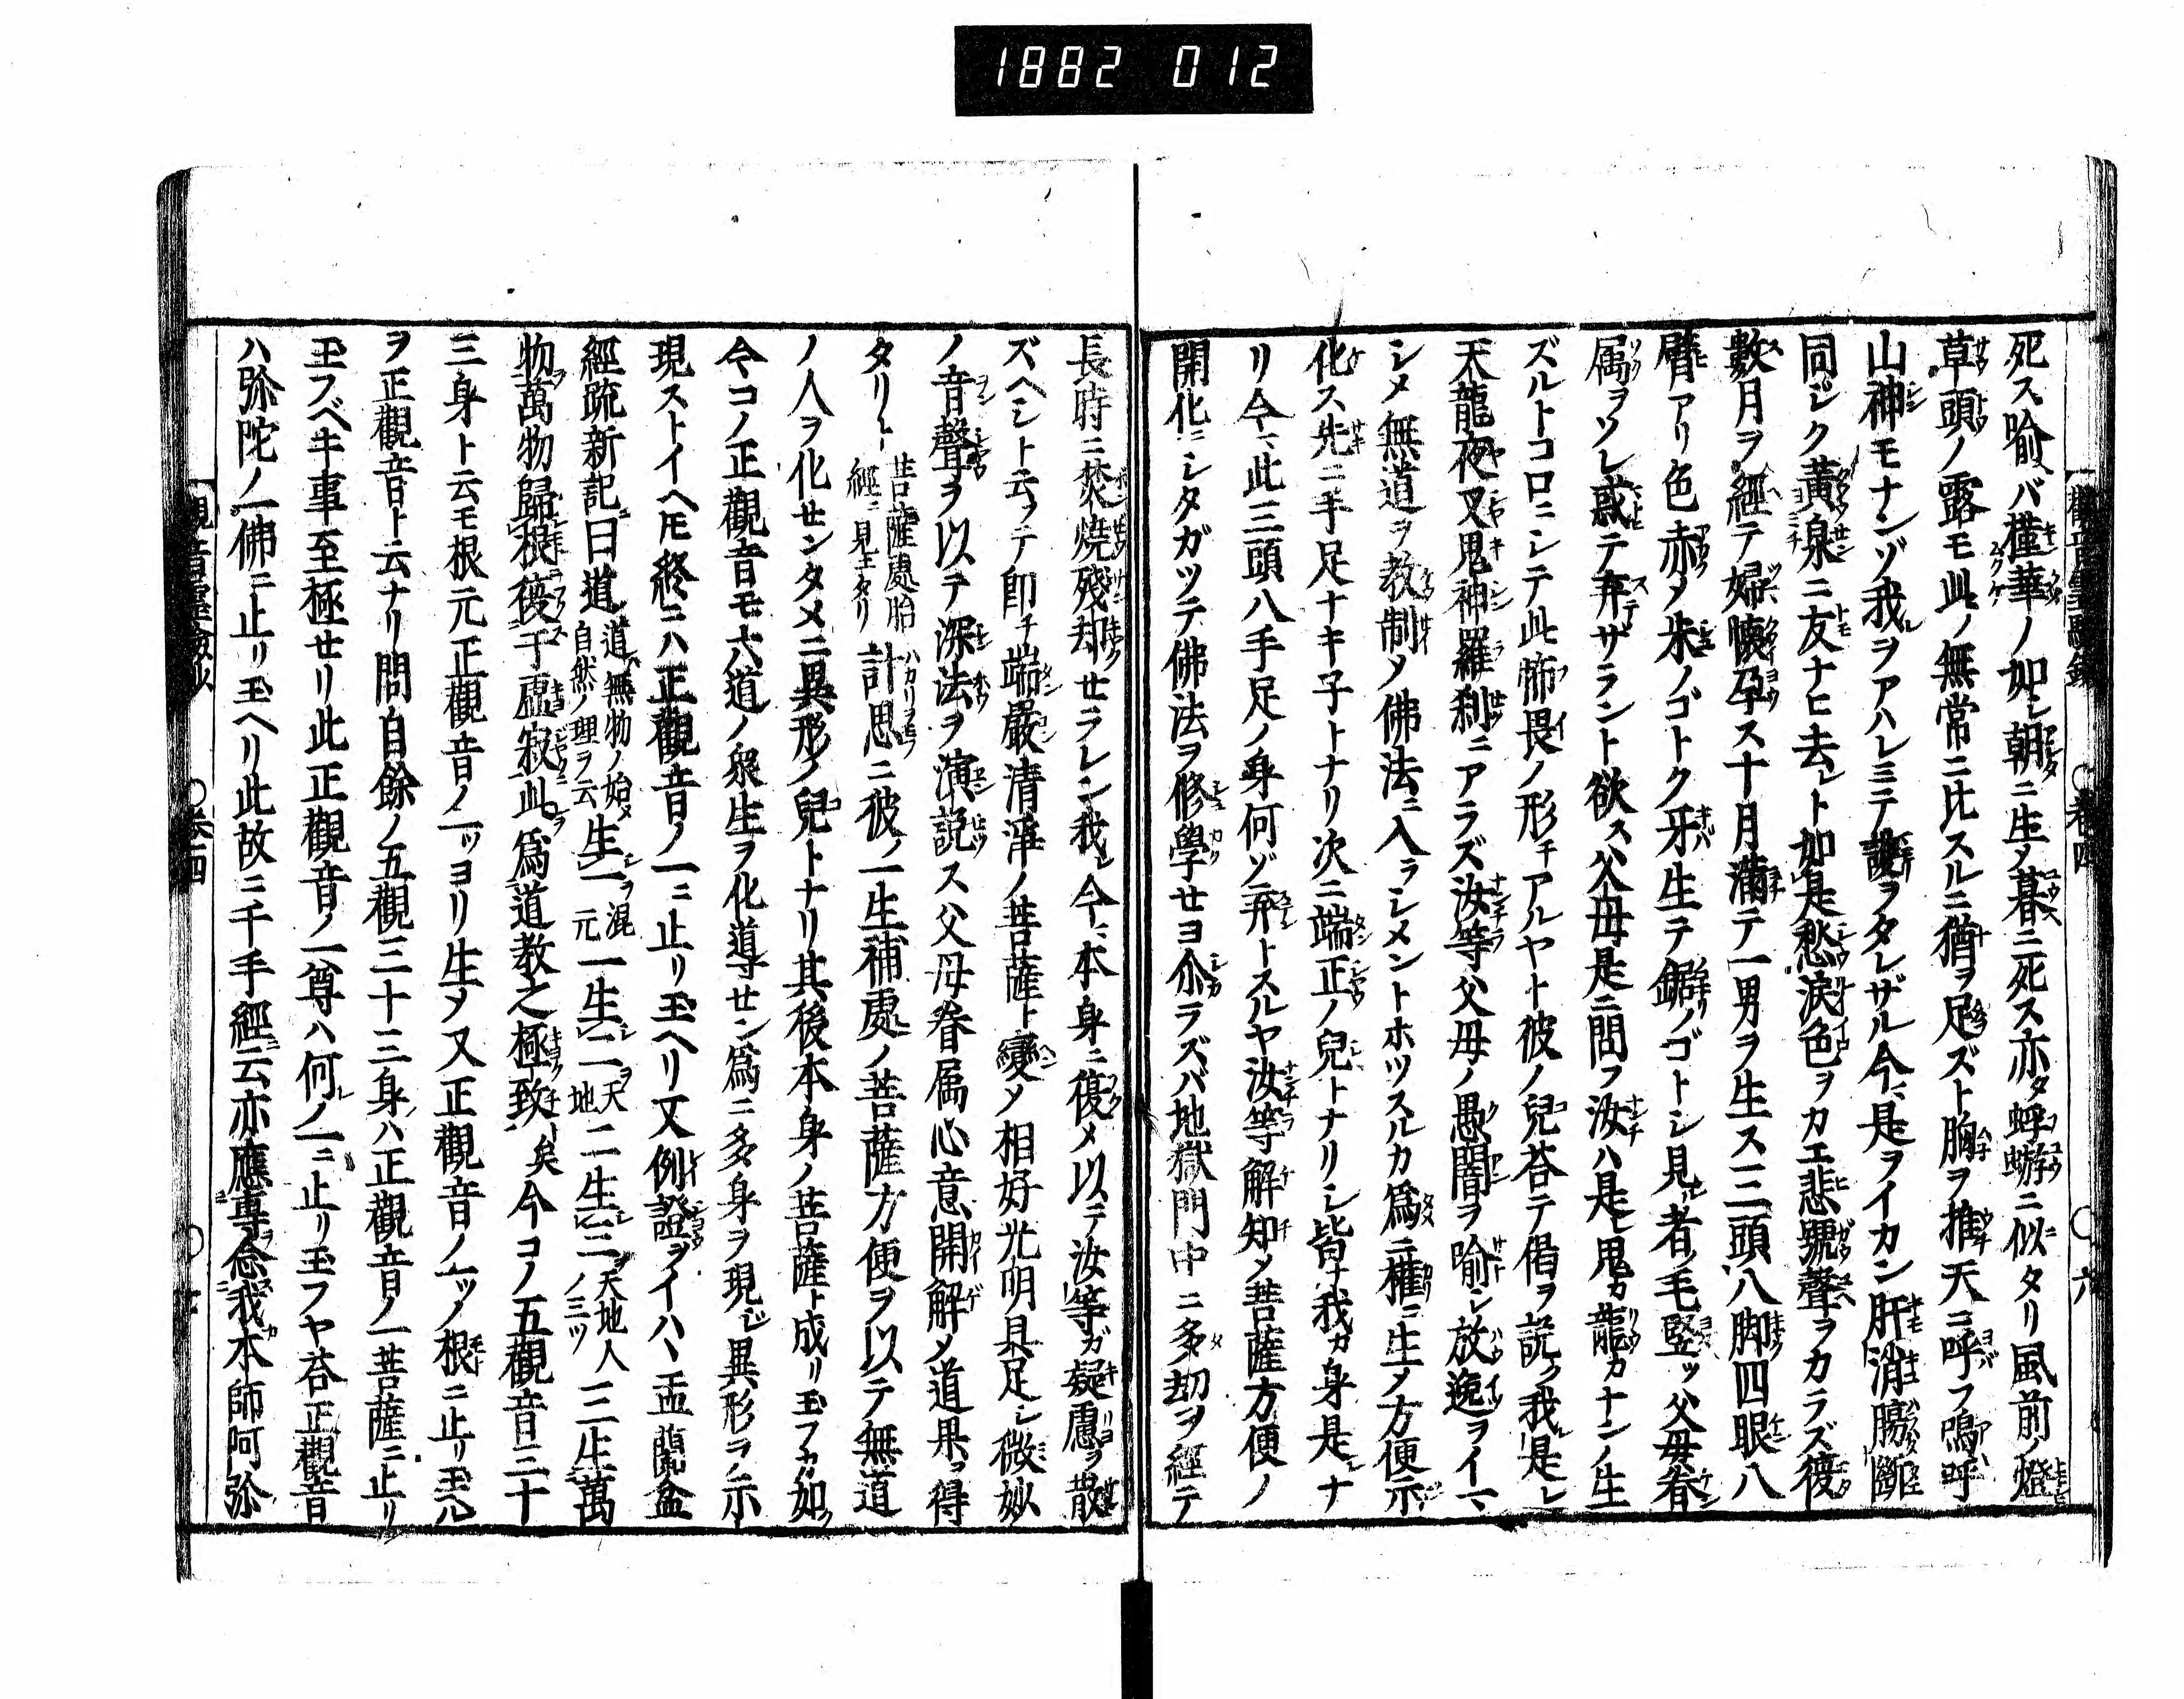 1882 012
死ス喩バ槿華ノ如シ朝ニ生メ暮ニ死ス亦タ蜉蝣ニ似タリ風前ノ燈
草頭ノ露モ此ノ無常ニ比スルニ猶ヲ足ズト胸ヲ推天ニ呼フ嗚呼
山神モナンゾ我ヲアハレミテ護ヲタレザル今ニ是ヲイカン肝消膓斷
同ジク黄泉ニ友ナヒ去レト如是愁涙色ヲカエ悲號聲ヲカラズ復
數月ヲ經テ婦懐孕ス十月滿テ一男ヲ生ス三頭八脚四眼八
臂アリ色赤メ朱ノゴトク牙生テ鋸ノゴトシ見者ノ毛竪ッ父母眷
属ヲソレ惑テ弃ザラント欲ス父母是ニ問フ汝ハ是レ鬼カ龍カナンノ生
ズルトコロニシテ此怖畏ノ形チアルヤト彼ノ兒荅テ偈ヲ説ク我是レ
天龍夜叉鬼神羅刹ニアラズ汝等父母ノ愚闇ヲ喩シ放逸ヲイマ
シメ無道ヲ教制メ佛法ニ入ラシメントホツスルカ爲ニ權ニ生メ方便示
化ス先ニ手足ナキ子トナリ次ニ端正ノ兒トナリシ皆ナ我ガ身是ナ
リ今ニ此三頭八手足ノ身何ゾ弃トスルヤ汝等解知メ菩薩方便ノ
開化ニシタガツテ佛法ヲ修學セヨ尒ラズバ地獄門中ニ多劫ヲ經テ
觀音靈驗鈔 ○卷四 ○六
長時ニ焚燒殘却セラレン我レ今ニ本身ニ復メ以テ汝等ガ疑慮ヲ散
ズヘシト云ヲテ卽チ端嚴清淨ノ菩薩ト變メ相好光明具足シ微妙
ノ音聲ヲ以テ深法ヲ演説ス父母眷属心意開解メ道果ヲ得
タリト菩薩處胎經ニ見玉タリ計思ニ彼ノ一生補處ノ菩薩方便ヲ以テ無道
ノ人ヲ化センタメニ異形ノ兒トナリ其後本身ノ菩薩ト成リ玉フカ如ク
今コノ正觀音モ六道ノ衆生ヲ化導セン爲ニ多身ヲ現ジ異形ヲ示
現ストイヘ𪜈終ニハ正觀音ノ一ニ止リ玉ヘリ又例證ヲイハヽ盂蘭盆
經疏新記曰道道ハ無物ノ始メ自然ノ理ヲ云生一ヲ混元一生二ヲ天地二生三ヲ天地人ノ三ツ三生萬
物萬物歸根復于虚寂此爲道教之極致矣今コノ五觀音三十
三身ト云モ根元正觀音ノ一ッヨリ生メ又正觀音ノ一ッノ根ニ止リ玉ル
ヲ正觀音ト云ナリ問自餘ノ五觀三十三身ハ正觀音ノ一菩薩ニ止リ
玉フベキ事至極セリ此正觀音ノ一尊ハ何ノ一ニ止リ玉フヤ荅正觀音
ハ弥陀ノ一佛ニ止リ玉ヘリ此故ニ千手經云亦應專念我本師阿弥